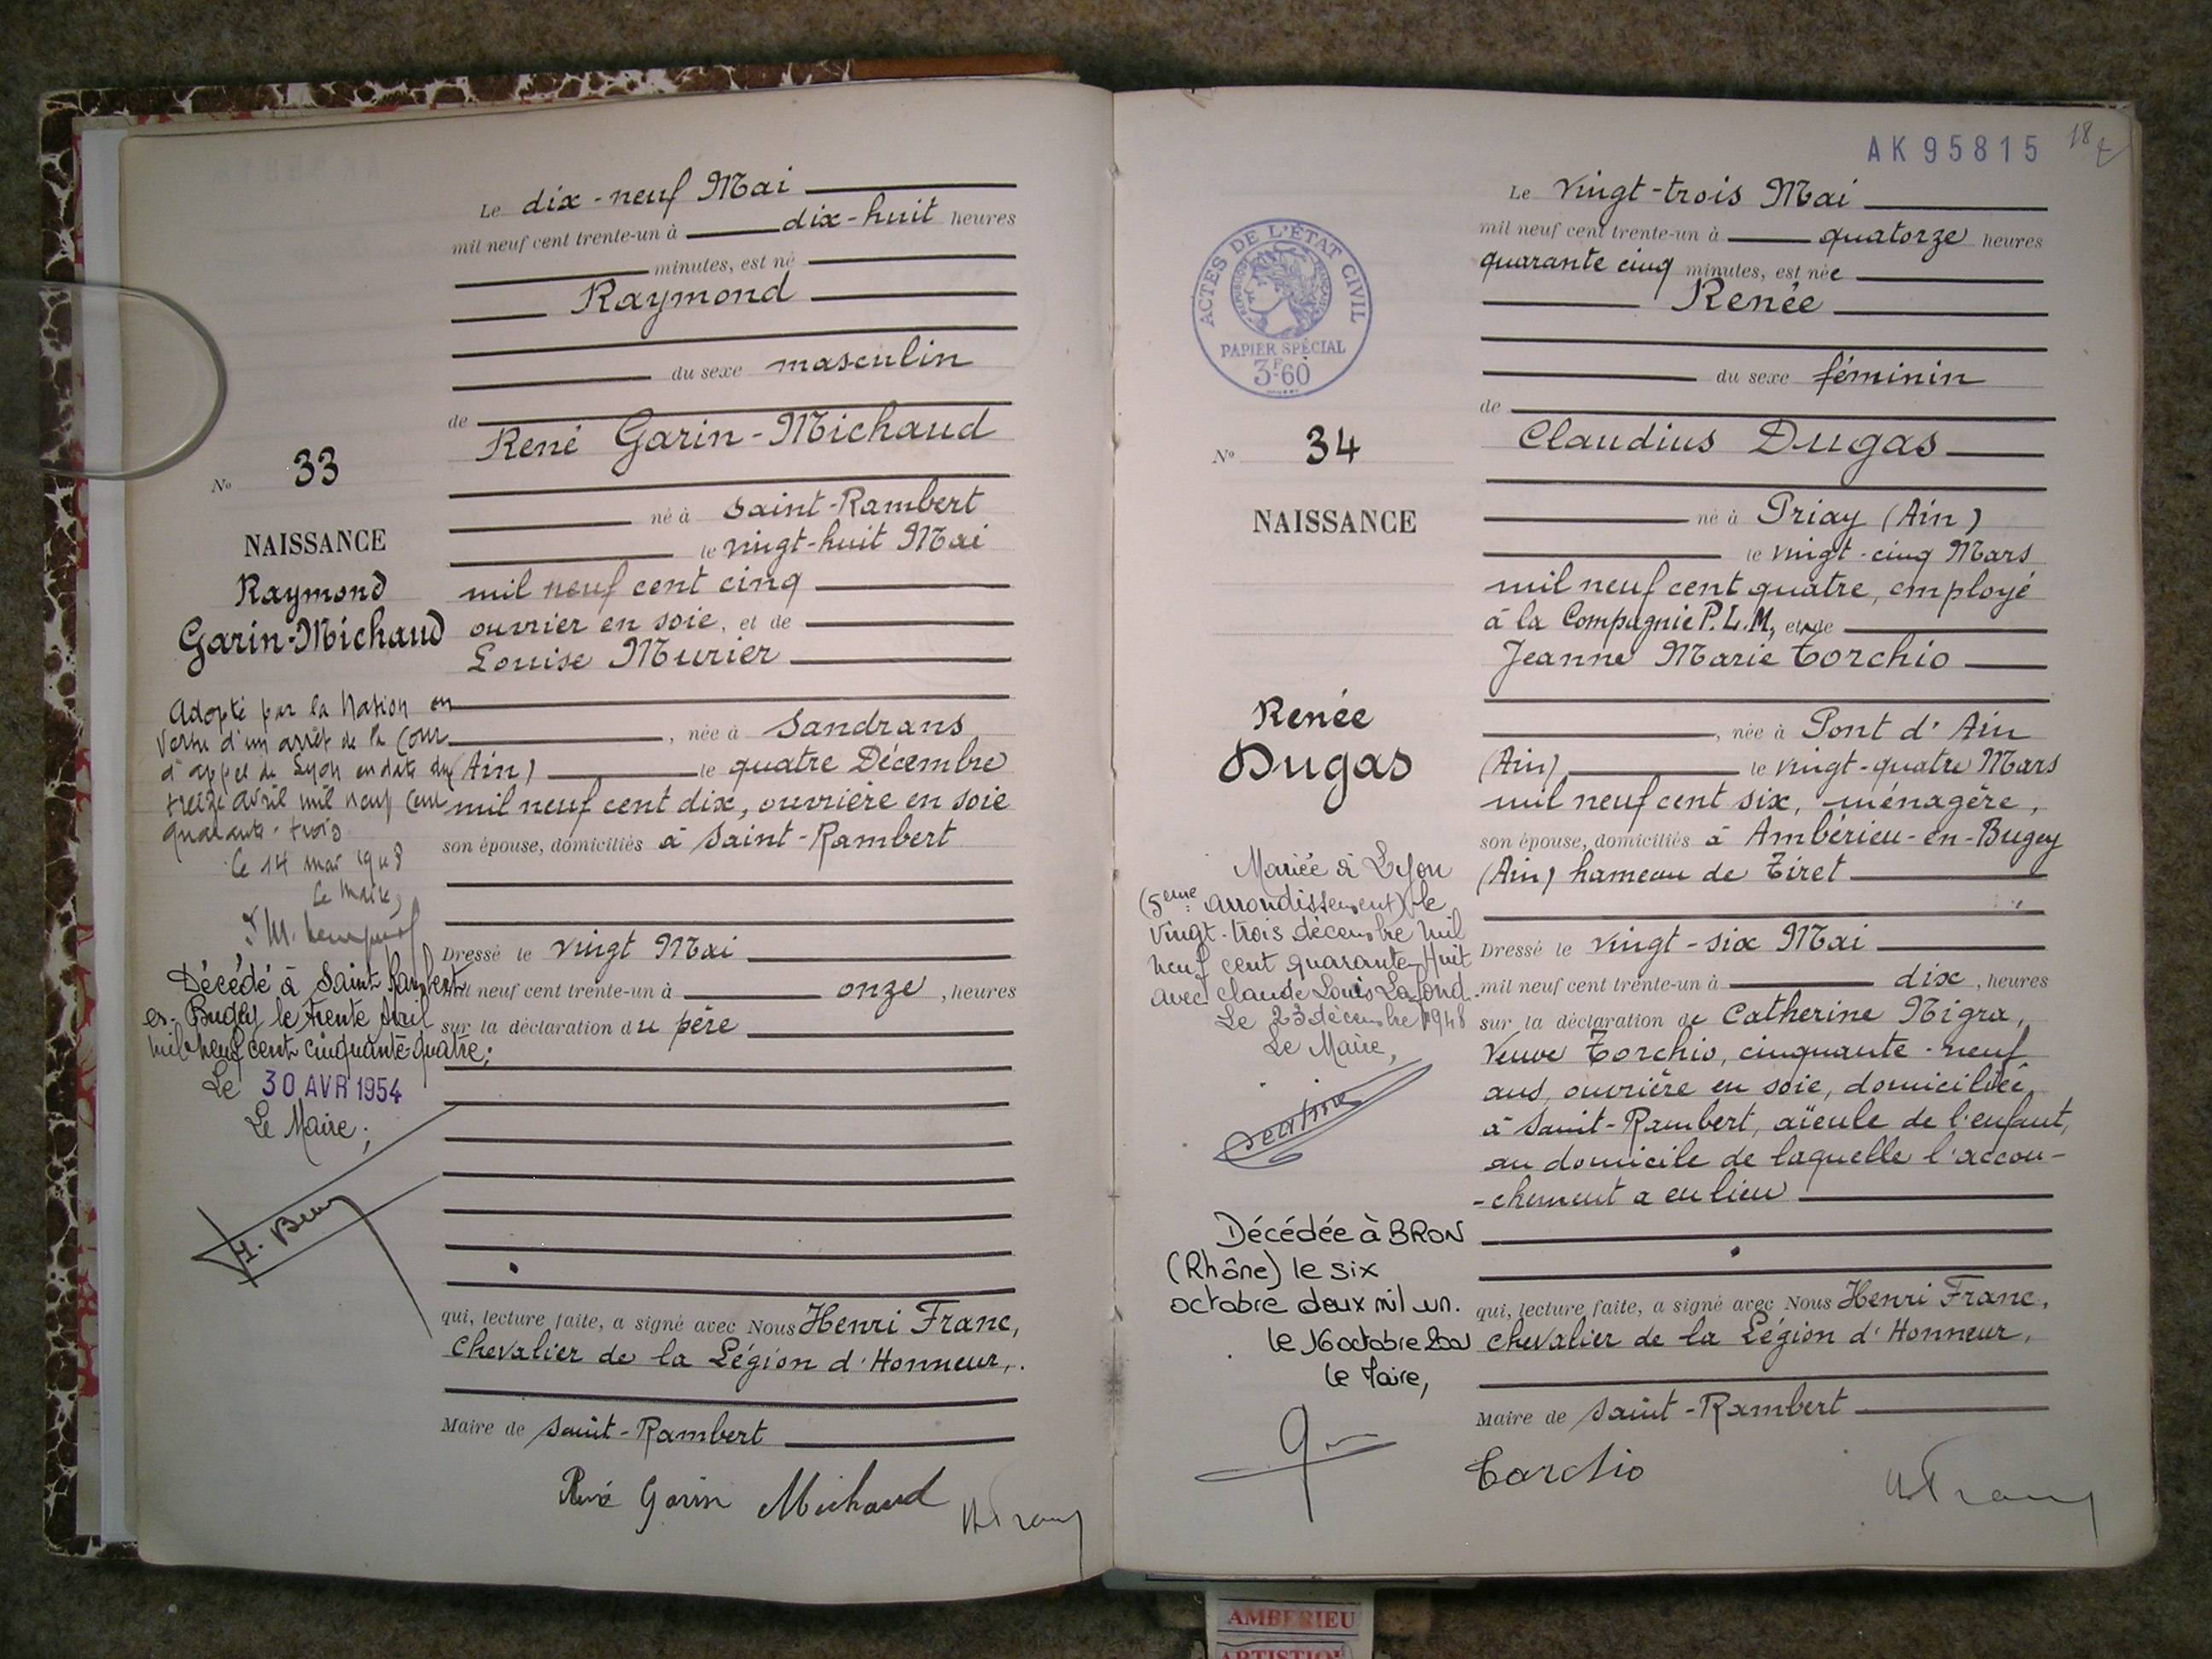 Le dix-neuf Mai
mil neuf cent trente-un à dix-huit heures
minutes, est né
Raymond
du sexe masculin
de
René Garin-Michaud
né à Saint-Rambert
le vingt-huit Mai
mil neuf cent cinq
ouvrier en soie, et de
Louise Murier
, née à Sandrans
(Ain) le quatre Décembre
mil neuf cent dix, ouvrière en soie
son épouse, domiciliés à Saint-Rambert
Dressé le vingt Mai
mil neuf cent trente-un à onze, heures
sur la déclaration du père
qui, lecture faite, a signé avec Nous Henri Franc,
Chevalier de la Légion d'Honneur,
Maire de Saint-Rambert
René Garin Michaud
N° 33
NAISSANCE
Raymond
Garin-Michaud
Adopté par la Nation en
vertu d'un arrêt de la Cour
d'appel de Lyon en date du
treize avril mil neuf cent
quarante-trois
Le 14 mai 1948
Le Maire,
Décédé à Saint Rambert
en-Bugey le trente Avril
mil neuf cent cinquante quatre;
Le 30 AVR 1954
Le Maire;
AK95815
18
ACTES DE L'ÉTAT CIVIL
RÉPUBLIQUE FRANÇAISE
PAPIER SPÉCIAL
3F60
Le vingt-trois Mai
mil neuf cent trente-un à quatorze heures
quarante cinq minutes, est née
Renée
du sexe féminin
de
Claudius Dugas
né à Priay (Ain)
le vingt-cinq Mars
mil neuf cent quatre, employé
à la Compagnie P.L.M, et de
Jeanne Marie Torchio
, née à Pont d'Ain
(Ain) le vingt-quatre Mars
mil neuf cent six, ménagère,
son épouse, domiciliés à Ambérieu-en-Bugey
(Ain) hameau de Tiret
Dressé le vingt-six Mai
mil neuf cent trente-un à dix, heures
sur la déclaration de Catherine Nigra,
Veuve Torchio, cinquante-neuf
ans, ouvrière en soie, domiciliée
à Saint-Rambert, aïeule de l'enfant,
au domicile de laquelle l'accou-
-chement a eu lieu
qui, lecture faite, a signé avec Nous Henri Franc,
Chevalier de la Légion d'Honneur,
Maire de Saint-Rambert
Torchio
N° 34
NAISSANCE
Renée
Dugas
Mariée à Lyon
(5eme arrondissement) le
vingt-trois décembre mil
neuf cent quarante-Huit
avec Claude Louis Lafond.
Le 23 décembre 1948
Le Maire,
Décédée à BRON
(Rhône) le six
octobre deux mil un.
le 16 octobre 2001
le Maire,
AMBERIEU